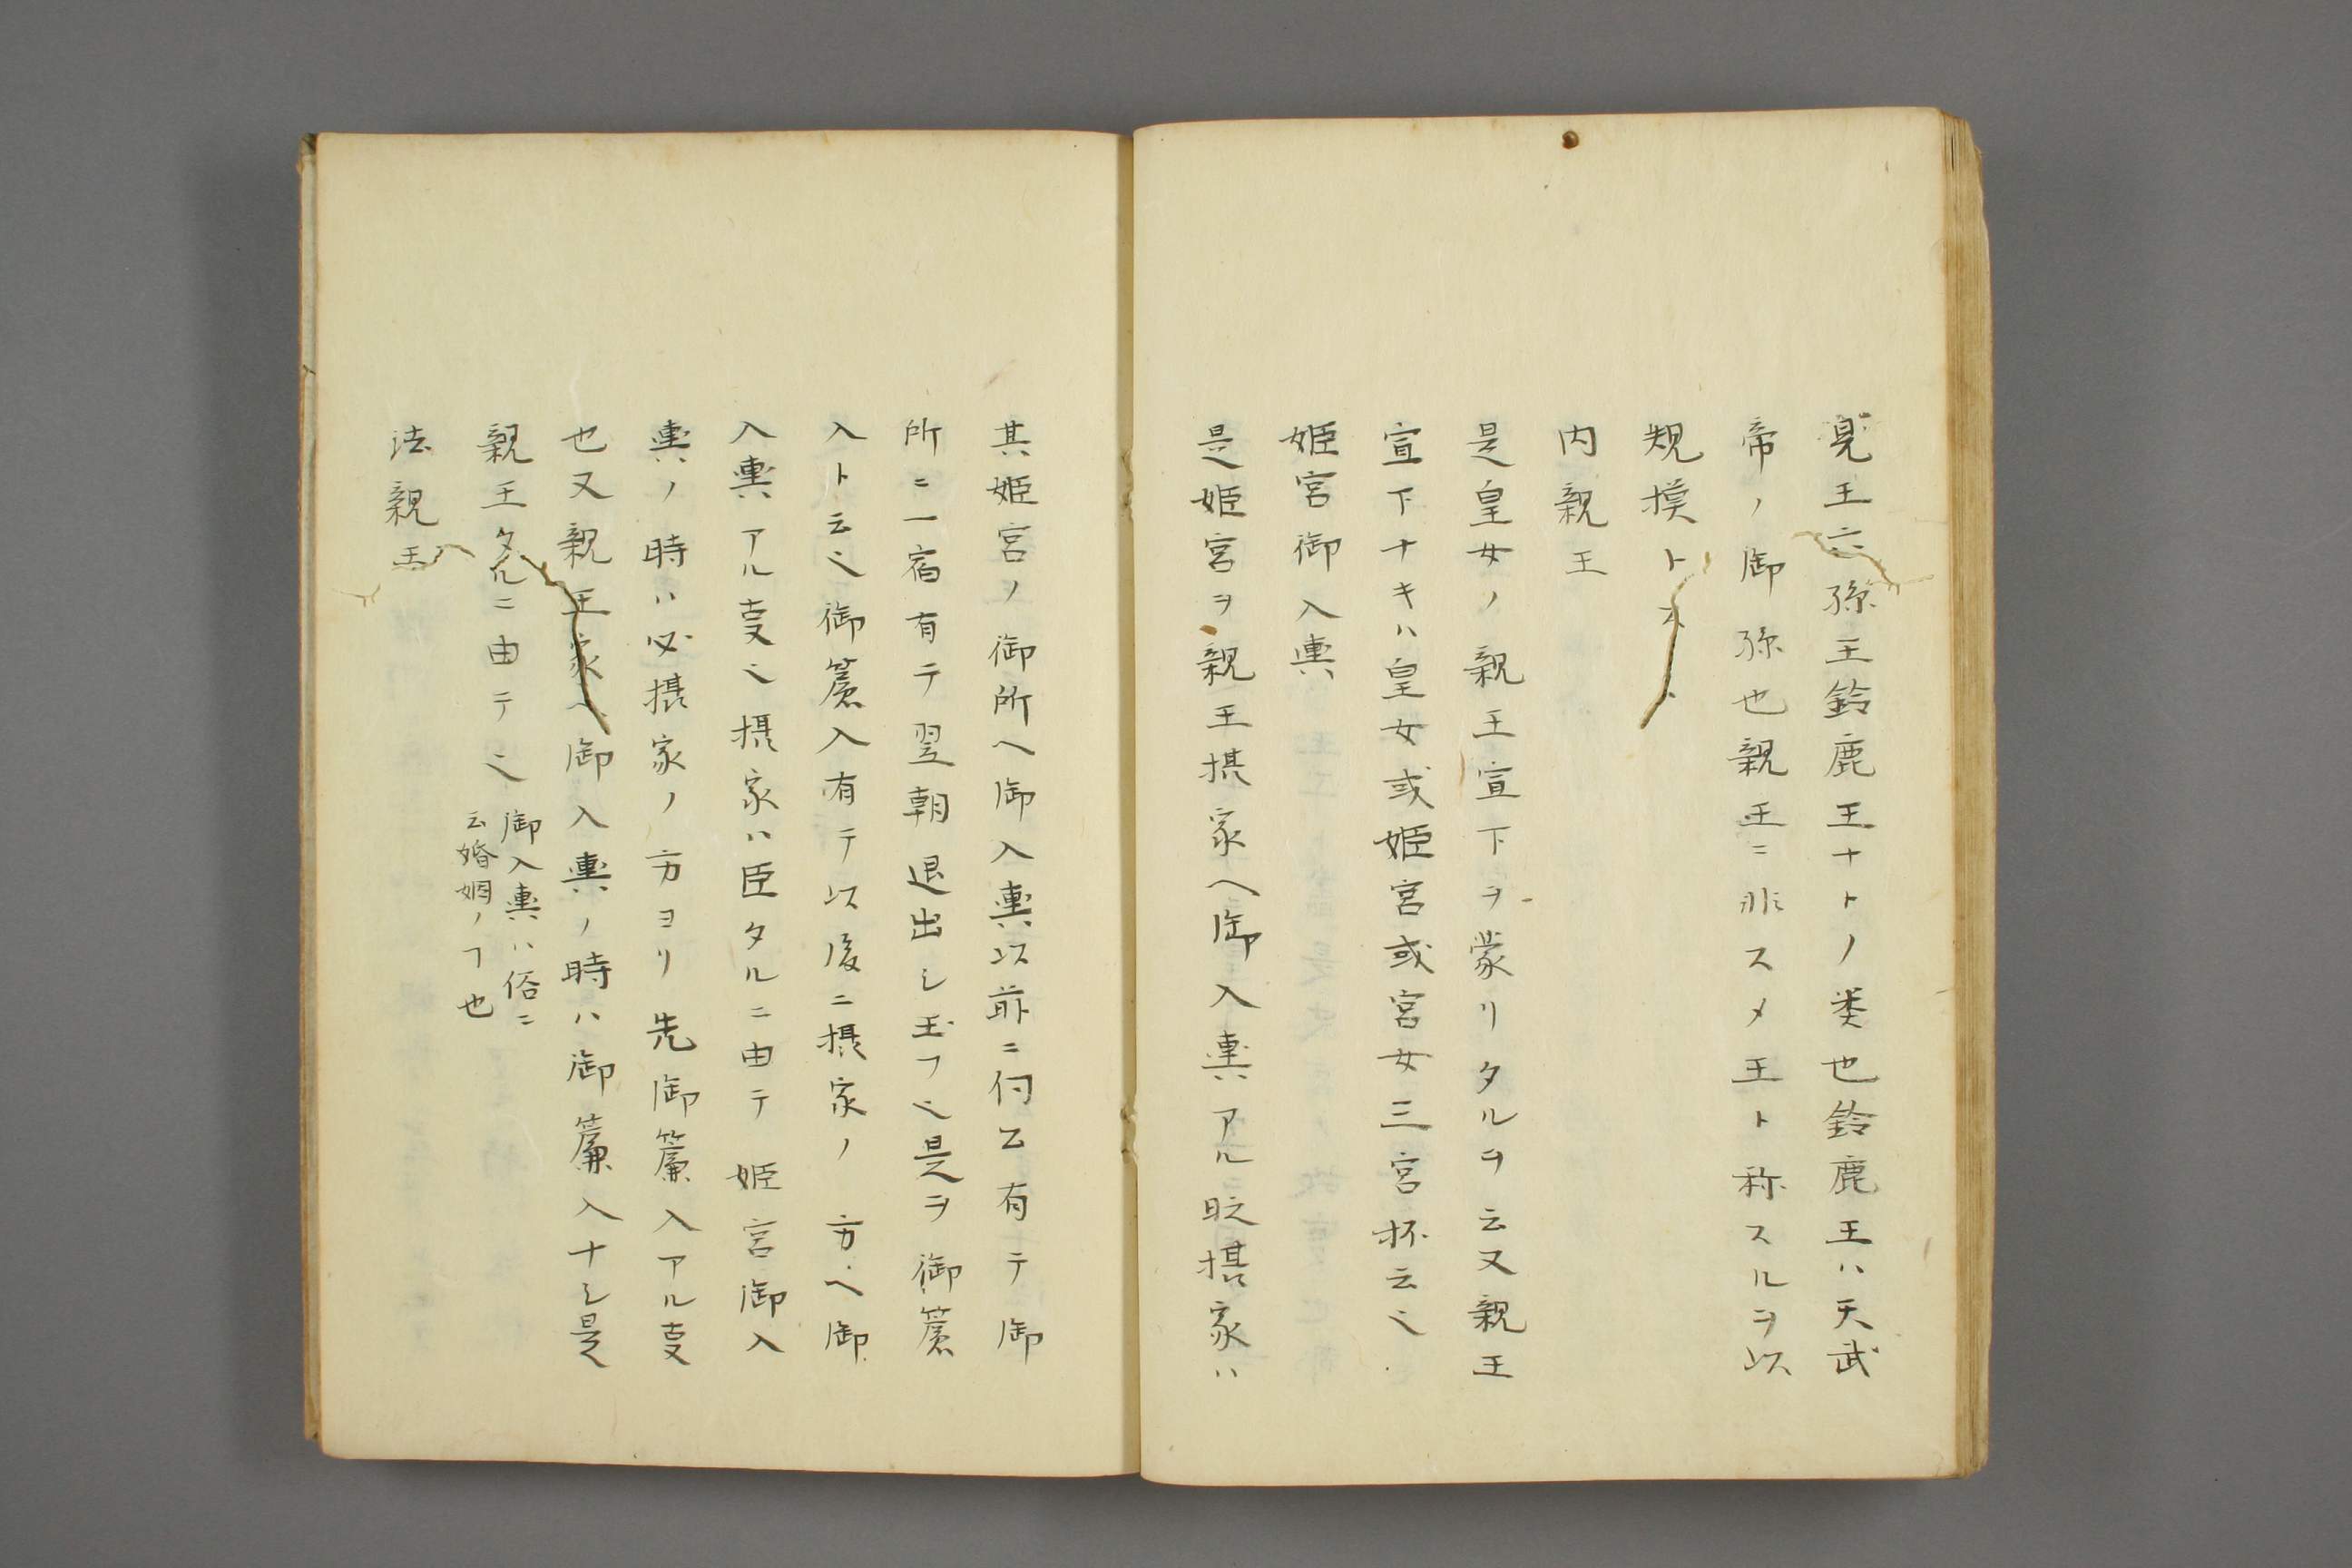 見王六孫王鈴鹿王ナトノ类也鈴鹿王ハ天武
帝ノ御孫也親王ニ非スメ王ト称スルヲ以
規摸トス
内親王
是皇女ノ親王宣下ヲ蒙リタルヲ云又親王
宣下ナキハ皇女或姫宮或宮女三宮抔云〻
姫宮御入輿
是姫宮ヲ親王摂家ヘ御入輿アル时摂家ハ
其姫宮ノ御所ヘ御入輿以前ニ何公有テ御
所ニ一宿有テ翌朝退出シ玉フ〻是ヲ御簾
入ト云〻御簾入有テ以後ニ摂家ノ方ヘ御
入輿アル㕝〻摂家ハ臣タルニ由テ姫宮御入
輿ノ時ハ必摂家ノ方ヨリ先御簾入アル㕝
也又親王家ヘ御入輿ノ時ハ御簾入ナシ是
親王タルニ由テ〻
御入輿ハ俗ニ
云婚姻ノヿ也
法親王